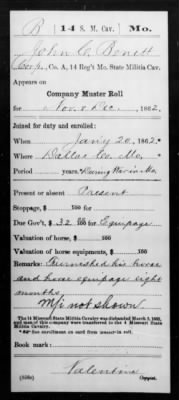 B | 14 S. M. Cav. | Mo.
John C. Benett
Corp., Co. A, 14 Reg't Mo. State Militia Cav.
Appears on
Company Muster Roll
for Nov. & Dec., 1862.
Joined for duty and enrolled:
When Jan'y 20, 1862.
Where Dallas Co. Mo.
Period years. During War in Mo.
Present or absent Present
Stoppage, $ 100 for
Due Gov't, $ 32 100 for Equipage
Valuation of horse, $ 100
Valuation of horse equipments, $ 100
Remarks: Furnished his horse
and horse equipage eight
months
M/i not shown
The 14 Missouri State Militia Cavalry was disbanded March 3, 1863,
and men of this company were transferred to the 4 Missouri State
Militia Cavalry.
*See enrollment on card from muster-in roll.
Book mark:
Valentine
Copyist.